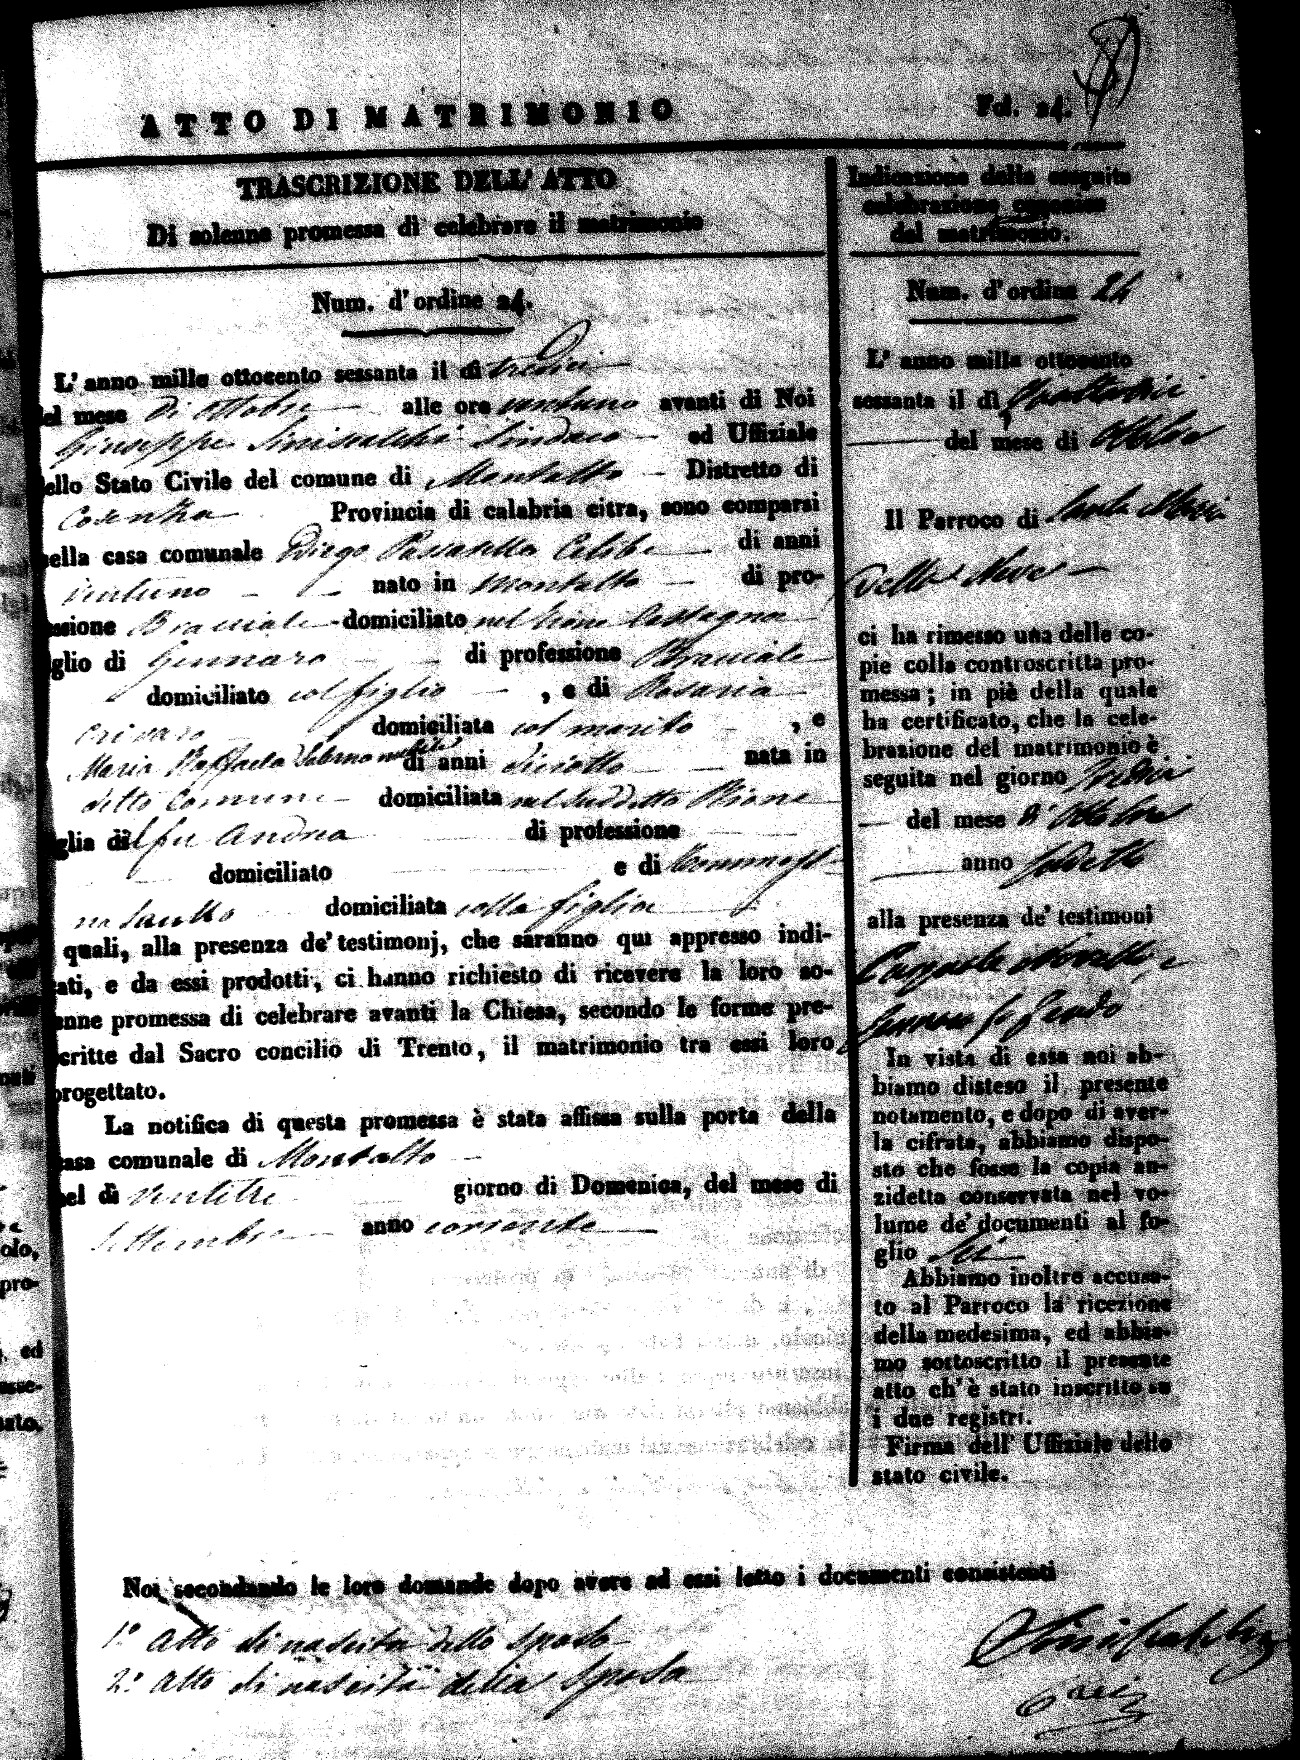 ATTO DI MATRIMONIO
Fol. 24.
TRASCRIZIONE DELL' ATTO
Di solenne promessa di celebrare il matrimonio
Num. d' ordine 24.
L' anno mille ottocento sessanta il dì tredici
del mese di Ottobre alle ore ventuno avanti di Noi
Giuseppe Siniscalchi Sindaco ed Uffiziale
dello Stato Civile del comune di Montalto Distretto di
Cosenza Provincia di calabria citra, sono comparsi
nella casa comunale Diego Passarella Celibe di anni
ventuno nato in Montalto di pro-
fessione Bracciale domiciliato nel Rione Castagna
figlio di Gennaro di professione Bracciale
domiciliato col figlio , e di Rosaria
Crivaro domiciliata col marito , e
Maria Raffaela Salerno nubile di anni diciotto nata in
detto Comune domiciliata nel suddetto Rione
figlia di fu Andrea di professione
domiciliato e di
domiciliata colla figlia
quali, alla presenza de' testimonj, che saranno qui appresso indi-
cati, e da essi prodotti, ci hanno richiesto di ricevere la loro so-
lenne promessa di celebrare avanti la Chiesa, secondo le forme pre-
scritte dal Sacro concilio di Trento, il matrimonio tra essi loro
progettato.
La notifica di questa promessa è stata affissa sulla porta della
casa comunale di Montalto
nel dì ventitre giorno di Domenica, del mese di
Settembre anno corrente
Noi secondando le loro domande dopo avere ad essi letto i documenti consistenti
1.º Atto di nascita dello sposo
2.º Atto di nascita della sposa
Indicazione della seguita
celebrazione canonica
del matrimonio.
Num. d' ordine 24
L' anno mille ottocento
sessanta il dì Quattordici
del mese di Ottobre
Il Parroco di Santa Maria
della Neve
ci ha rimesso una delle co-
pie colla controscritta pro-
messa; in piè della quale
ha certificato, che la cele-
brazione del matrimonio è
seguita nel giorno tredici
del mese di Ottobre
anno suddetto
alla presenza de' testimonj
Pasquale Novello, e
Gennaro
In vista di essa noi ab-
biamo disteso il presente
notamento, e dopo di aver-
la cifrata, abbiamo dispo-
sto che fosse la copia an-
zidetta conservata nel vo-
lume de' documenti al fo-
glio sei
Abbiamo inoltre accusa-
to al Parroco la ricezione
della medesima, ed abbia-
mo sottoscritto il presente
atto ch' è stato inscritto su
i due registri.
Firma dell' Uffiziale dello
stato civile.
Siniscalchi